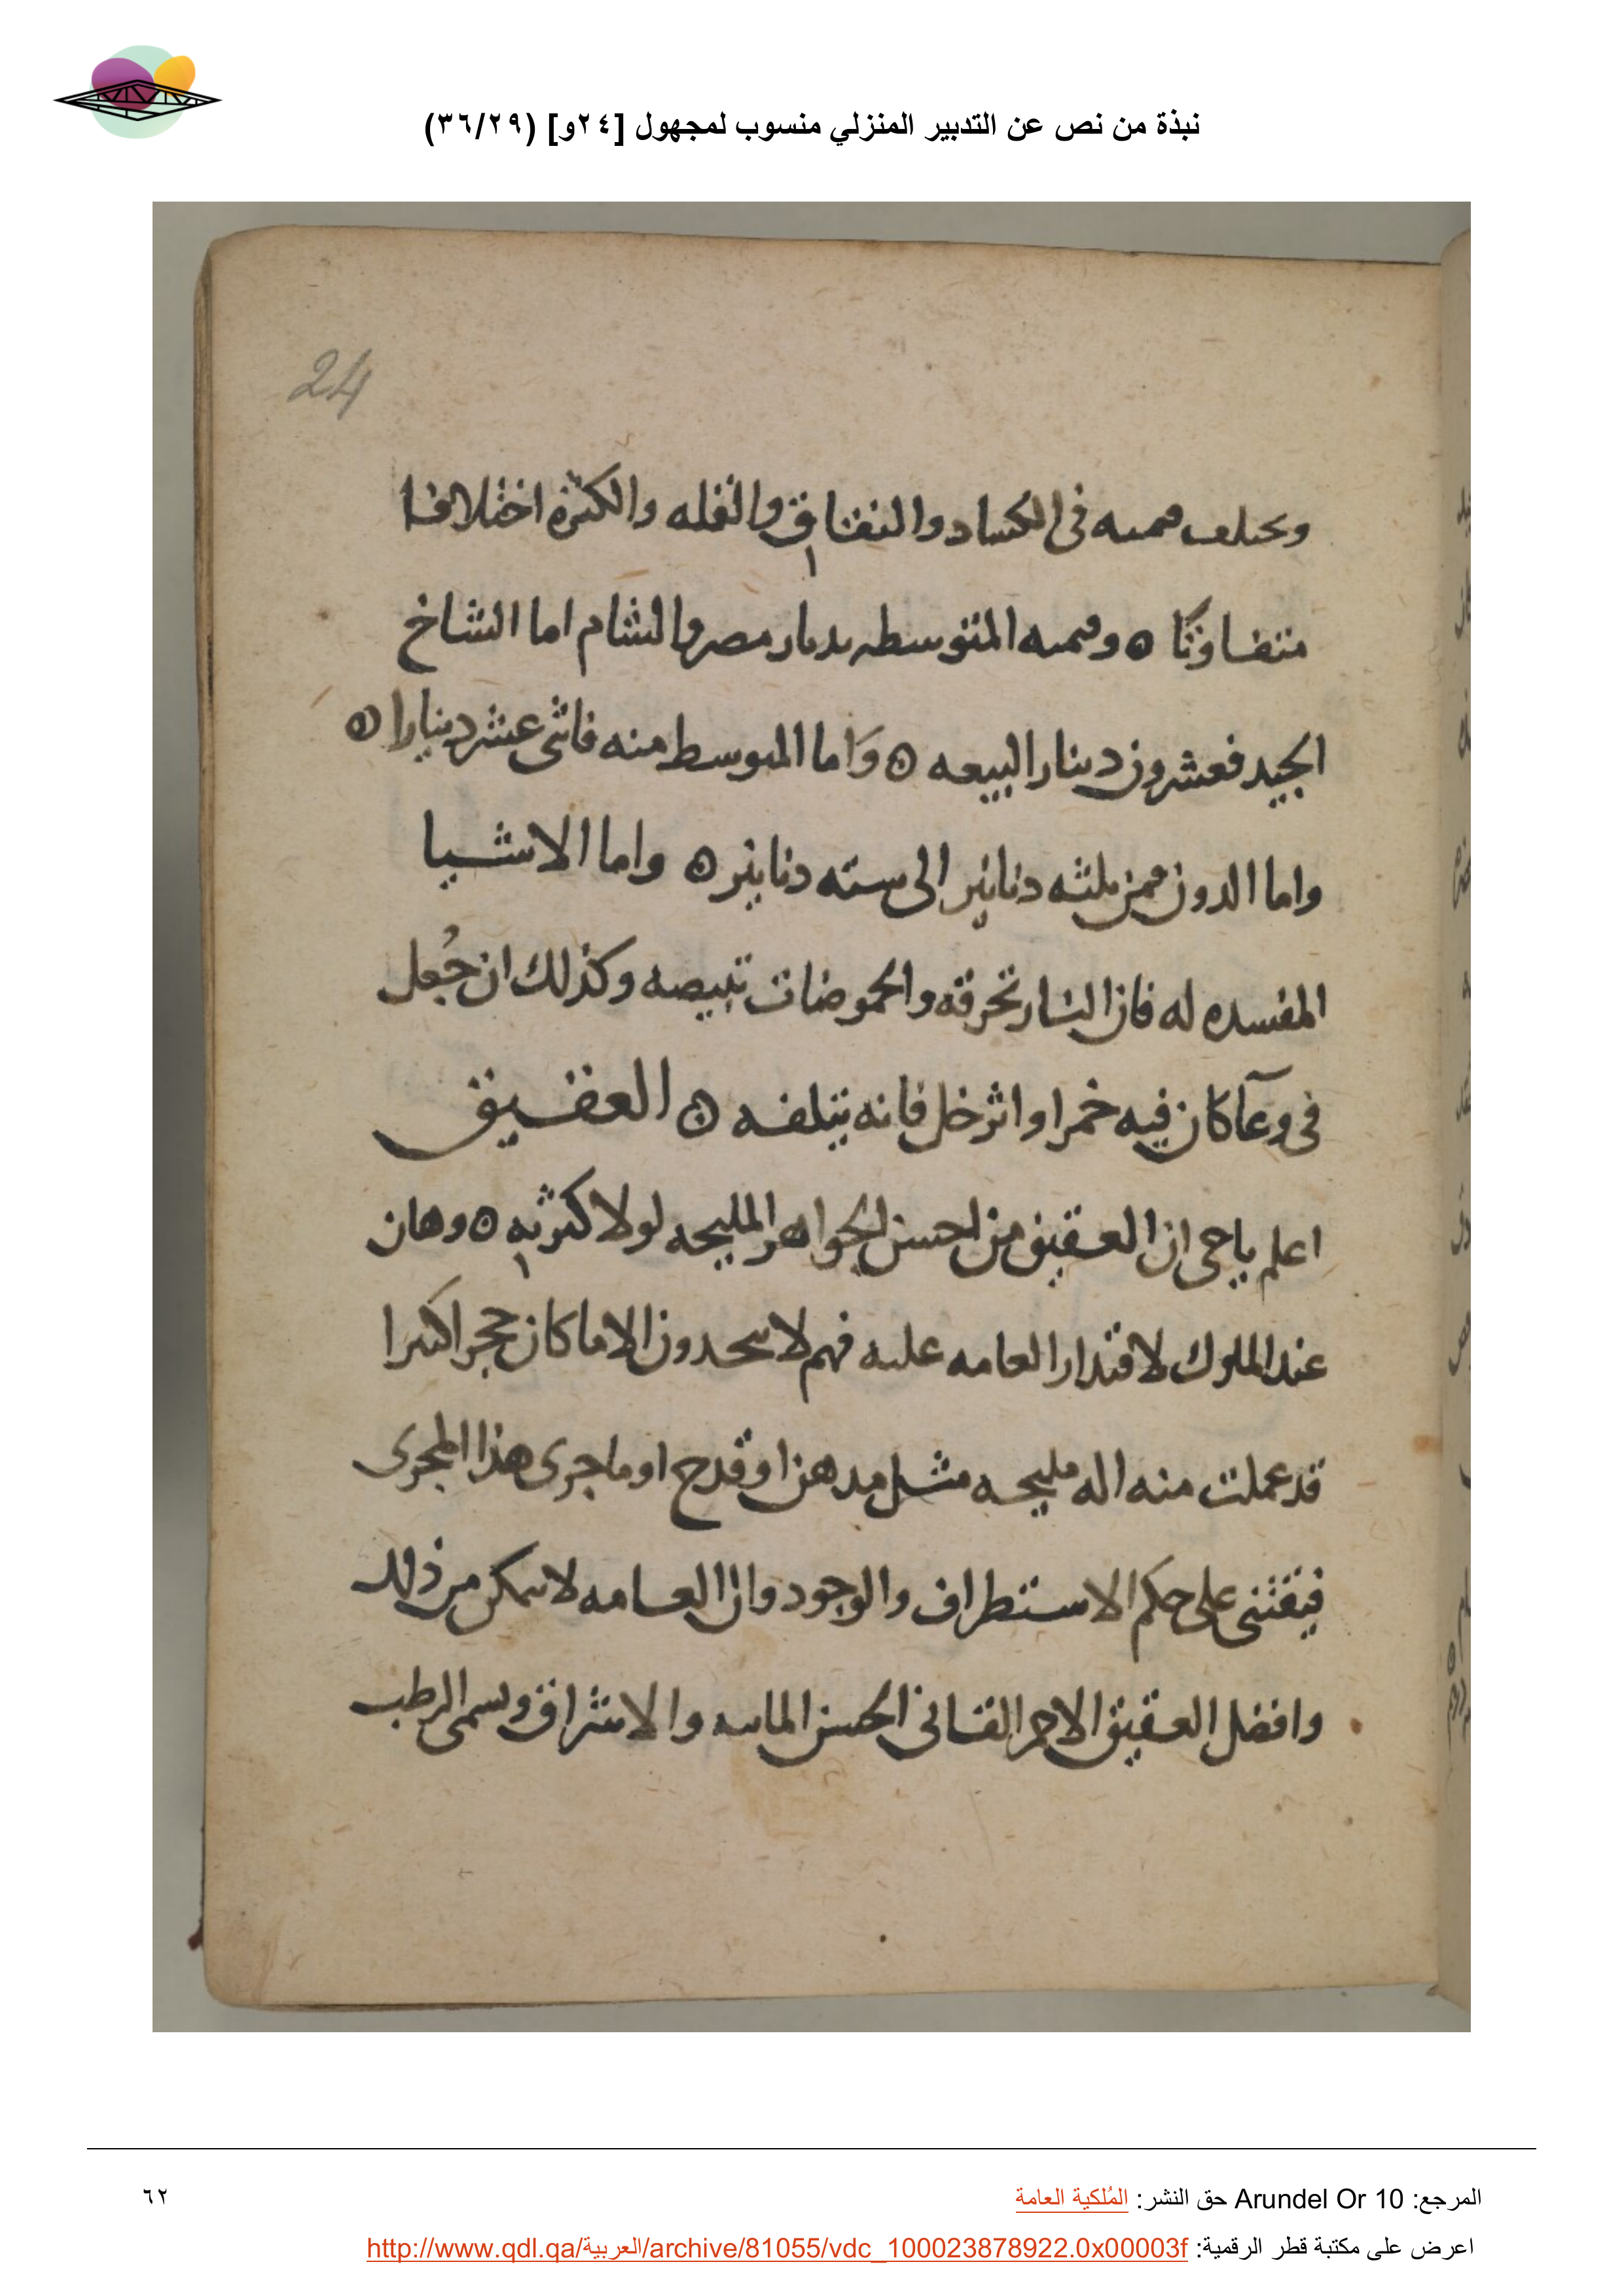 نبذة من نص عن التدبير المنزلي منسوب لمجهول [٢٤و] (٣٦/٢٩)
24
وتختلف قيمته في الكساد والنفاق والقله والكثرة اختلافا
متفاوتا ۞ وقيمته المتوسطه بديار مصر والشام اما الشاخ
الجيد فعشرون دينارا البيعه ۞ وَاما المتوسط منه فاثنى عشر دينارا ۞
واما الدون فمن ثلثه دنانير الى سته دنانير ۞ واما الاشيا
المفسده له فان النار تحرقه والحموضات تبيضه وكذلك ان جُعل
في وعآ كان فيه خمرا او اثر خل فانه يتلفه ۞ العقيق
اعلم ياخى ان العقيق من احسن الجواهر المليحه لولا كثرته ۞ وهان
عند الملوك لاقتدار العامه عليه فهم لا يتخدون الا ما كان حجرا كبيرا
قد عملت منه اله مليحه مثل مدهن او قدح او ما جرى هذا المجرى
فيقتنى على حكم الاستطراف والوجود وان العامه لا تمكن من ذلك
وافضل العقيق الاحمر القانى الحسن المائيه والاشراق ويسمى الرطب
المرجع: Arundel Or 10 حق النشر: المُلكية العامة
٦٢
اعرض على مكتبة قطر الرقمية: http://www.qdl.qa/العربية/archive/81055/vdc_100023878922.0x00003f